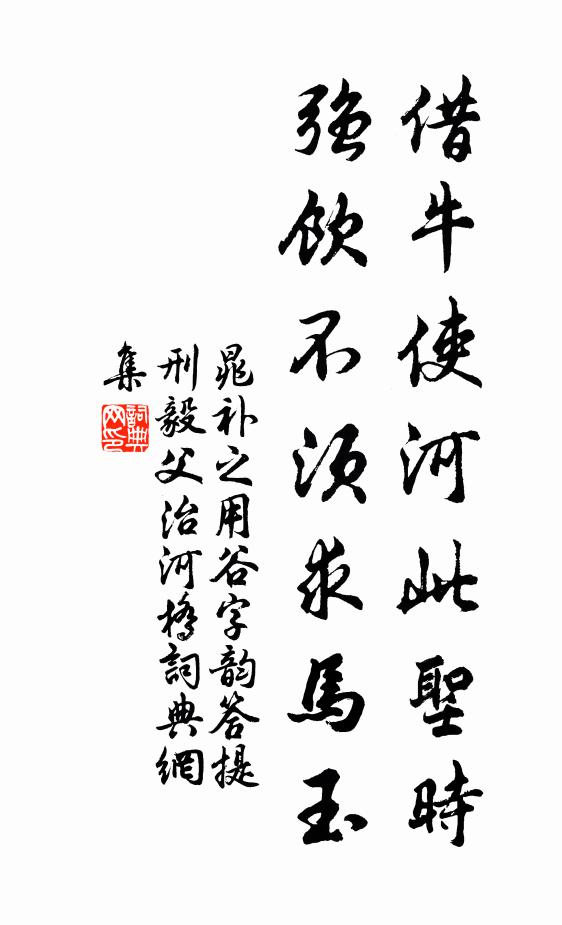 借牛使河此聖時
強飲不須求馬玉
晁补之用谷字韵答提
刑毅父治河橋詞典網
集
詞典
网印